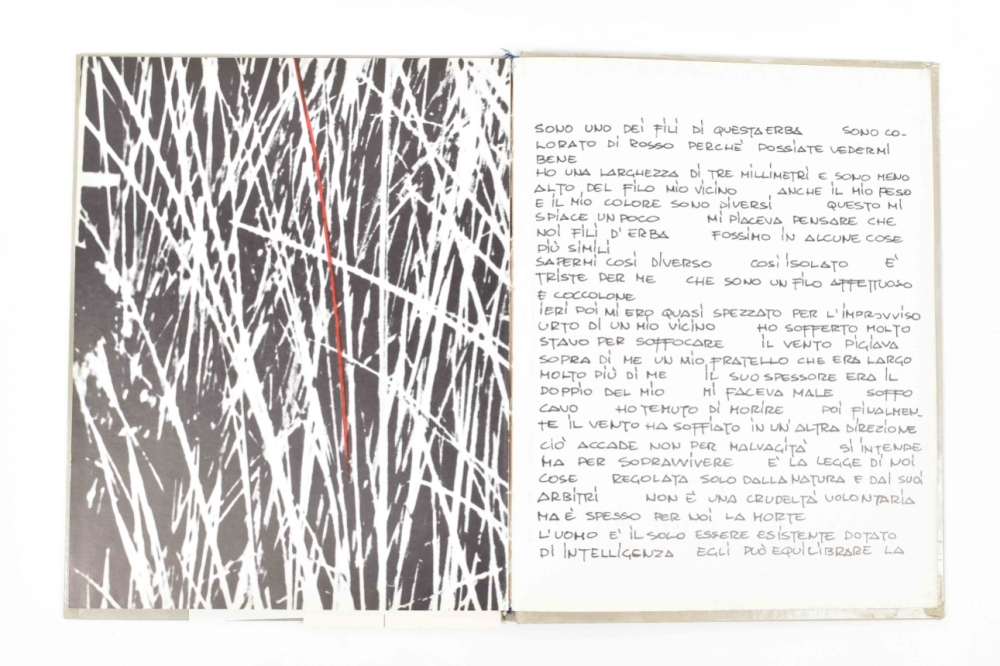 SONO UNO DEI FILI DI QUESTA ERBA SONO CO-
LORATO DI ROSSO PERCHE' POSSIATE VEDERMI
BENE
HO UNA LARGHEZZA DI TRE MILLIMETRI E SONO MENO
ALTO DEL FILO MIO VICINO ANCHE IL MIO PESO
E IL MIO COLORE SONO DIVERSI QUESTO MI
SPIACE UN POCO MI PIACEVA PENSARE CHE
NOI FILI D'ERBA FOSSIMO IN ALCUNE COSE
PIÙ SIMILI
SAPERMI COSÌ DIVERSO COSÌ ISOLATO E'
TRISTE PER ME CHE SONO UN FILO AFFETTUOSO
E COCCOLONE
IERI POI MI ERO QUASI SPEZZATO PER L'IMPROVVISO
URTO DI UN MIO VICINO HO SOFFERTO MOLTO
STAVO PER SOFFOCARE IL VENTO PIGIAVA
SOPRA DI ME UN MIO FRATELLO CHE ERA LARGO
MOLTO PIÙ DI ME IL SUO SPESSORE ERA IL
DOPPIO DEL MIO MI FACEVA MALE SOFFO
CAVO HO TEMUTO DI MORIRE POI FINALMEN-
TE IL VENTO HA SOFFIATO IN UN'ALTRA DIREZIONE
CIÒ ACCADE NON PER MALVAGITA' SI INTENDE
MA PER SOPRAVVIVERE E' LA LEGGE DI NOI
COSE REGOLATA SOLO DALLA NATURA E DAI SUOI
ARBITRI NON È UNA CRUDELTA' VOLONTARIA
MA È SPESSO PER NOI LA MORTE
L'UOMO E' IL SOLO ESSERE ESISTENTE DOTATO
DI INTELLIGENZA EGLI PUÒ EQUILIBRARE LA